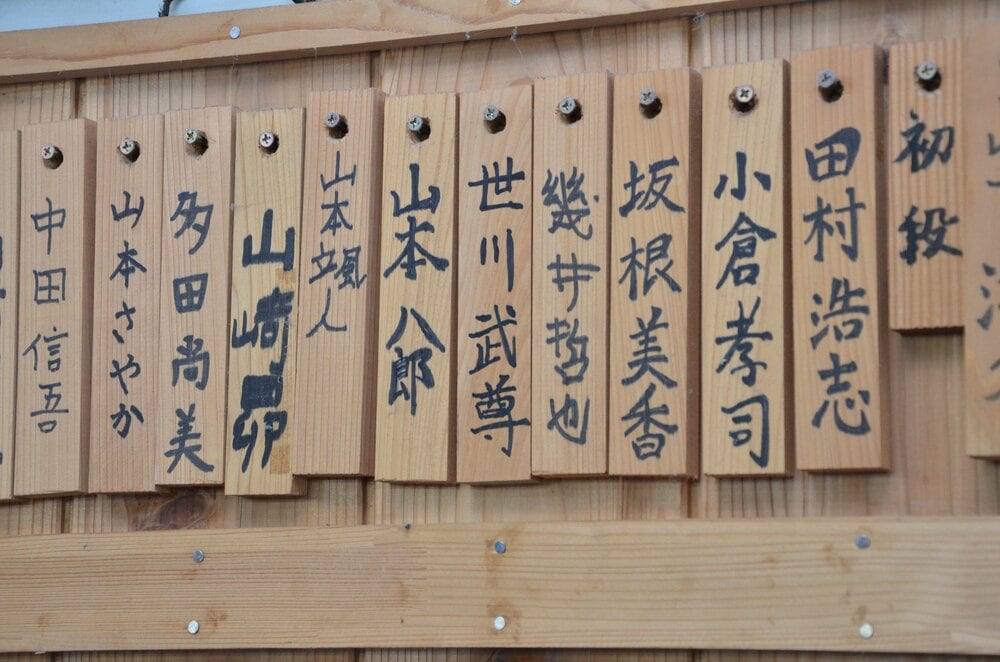 初段
田村浩志
小倉孝司
坂根美香
幾井哲也
世川武尊
山本八郎
山本颯人
山崎昴
多田尚美
山本さやか
中田信吾